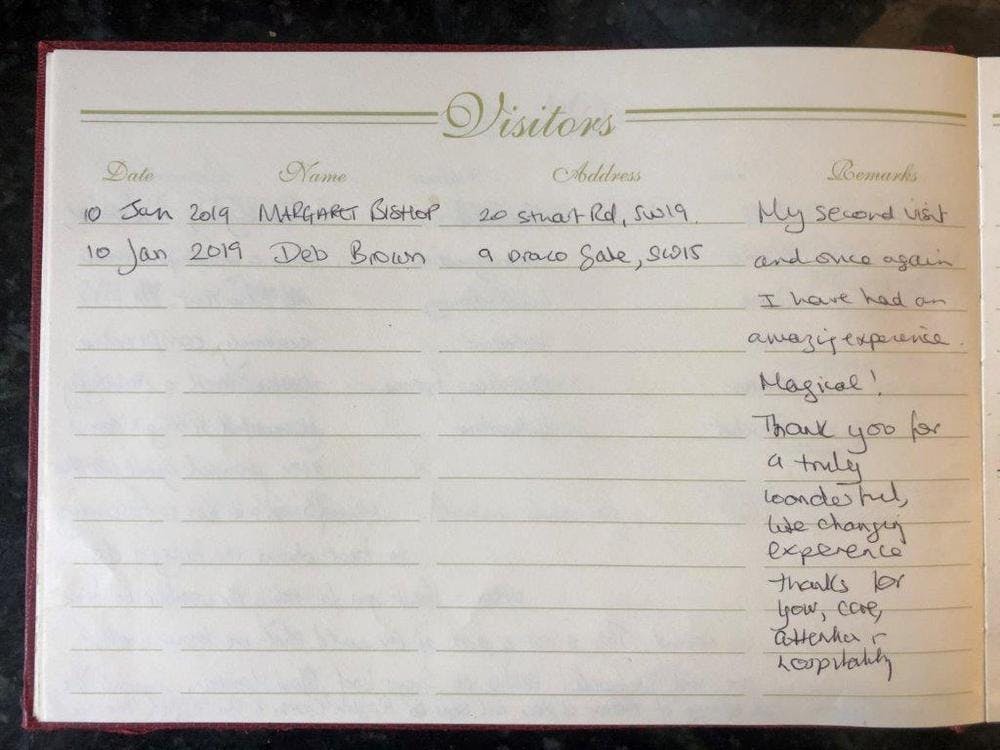 Visitors
Date Name Address Remarks
10 Jan 2019 MARGARET BISHOP 20 Stuart Rd, SW19. My second visit
10 Jan 2019 Deb Brown 9 Draco Gate, SW15 and once again
I have had an
amazing experience.
Magical!
Thank you for
a truly
wonderful,
life changing
experience
thanks for
your, care,
attention +
hospitality